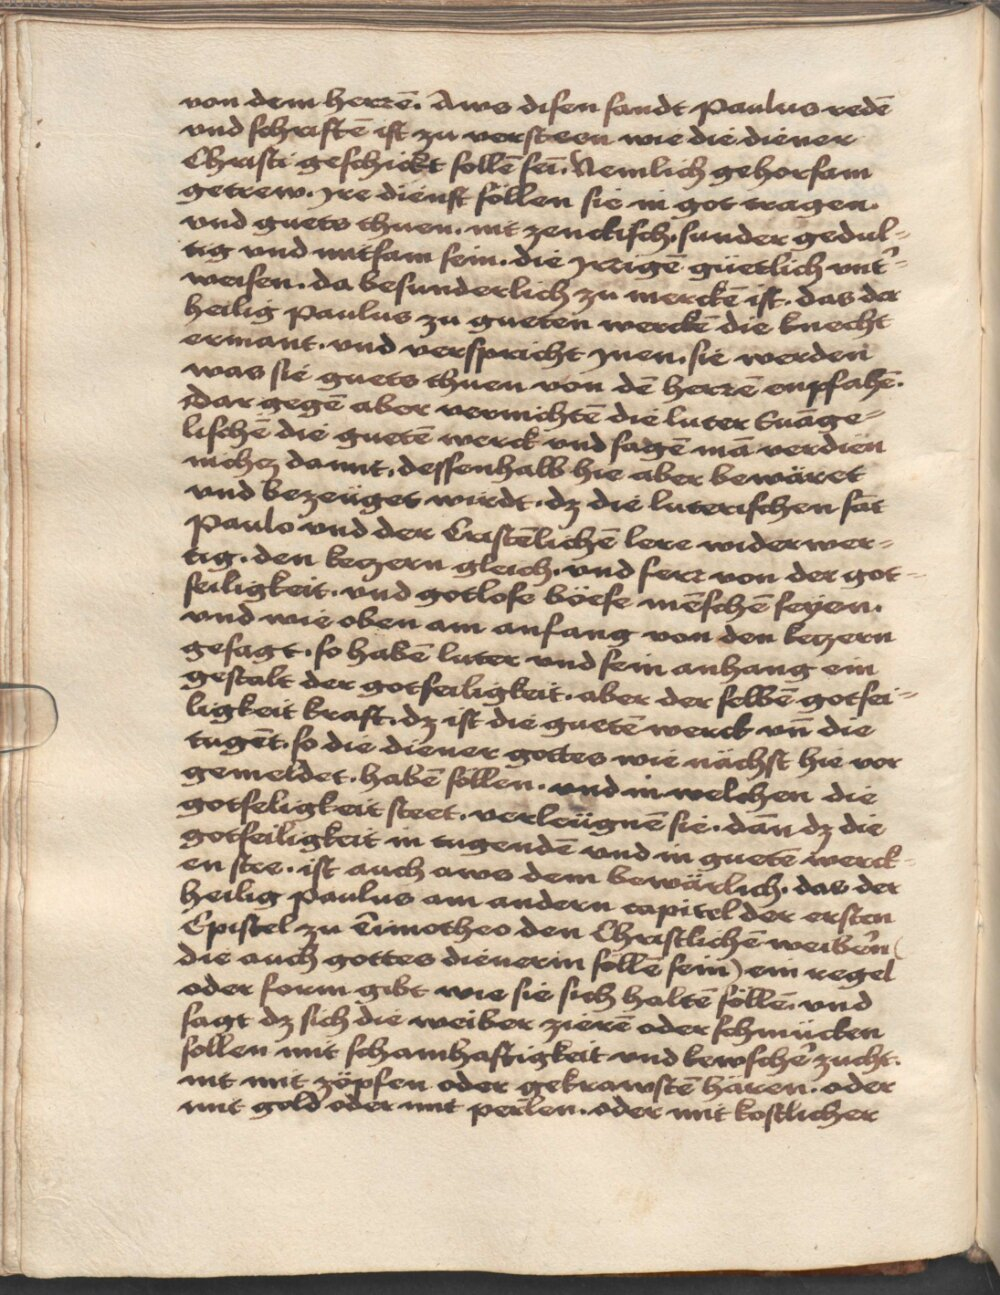 von dem herrē. Aws disen sandt Paulus redē
vnd schriftē ist zu versteen wie die diener
Christi geschickt sollē sei. Nemlich gehorsam
getrew. Jre dienst söllen sie in got tragen.
vnd guets thuen. nit zenckisch. sunder gedul-
tig vnd mitsam sein. die jrrigē güetlich vnt'-
weisen. da besunderlich zu merckē ist. das der
heilig Paulus zu gueten werckē die knecht
ermant. vnd verspricht jnen. sie werden
was sie guets thuen von dē herrē enpfahē.
Dar gegē aber vernichtē die luter Euāge-
lischē die guetē werck vnd sagē mā verdien
nichtz damit. dessenhalb hie aber bewäret
vnd bezeüget wirdt. dz die luterischen sāt
Paulo vnd der Cristēlichē lere widerwer-
tig. den ketzern gleich. vnd ferr von der got-
seiligkeit. vnd gotlose böese mēschē seyen.
vnd wie oben am anfang von den ketzern
gesagt. so habē luter vnd sein anhang ein
gestalt der gotseiligkeit. aber der selbē gotsei-
ligkeit kraft. dz ist die guetē werck vn̄ die
tugēt. so die diener gottes wie nächst hie vor
gemeldet. habē söllen. vnd in welchen die
gotseligkeit steet. verleügnē sie. dān dz die
gotseiligkeit in tugendē vnd in guetē werck-
en stee. ist auch aws dem bewärlich. das der
heilig Paulus am andern capitel der ersten
Epistel zu Timotheo den Christlichē weibern (
die auch gottes dienerin söllē sein) ein regel
oder form gibt wie sie sich haltē söllē. vnd
sagt dz sich die weiber zierē oder schmücken
sollen mit schamhaftigkeit vnd kewscher zucht.
nit mit zöpfen oder gekrawstē hären. oder
mit gold oder mit perlen. oder mit kostlicher